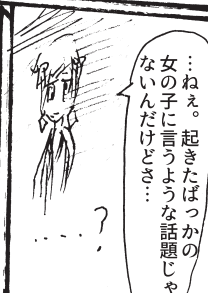 …ねぇ。起きたばっかの
女の子に言うような話題じゃ
ないんだけどさ…
……?